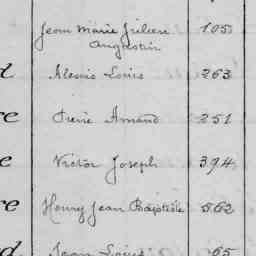 Jean Marie Julien 105
Augustin
d Alexis Louis 263
re Pierre Amand 251
e Victor Joseph 394
re Henry Jean Baptiste 562
d Jean Louis 65